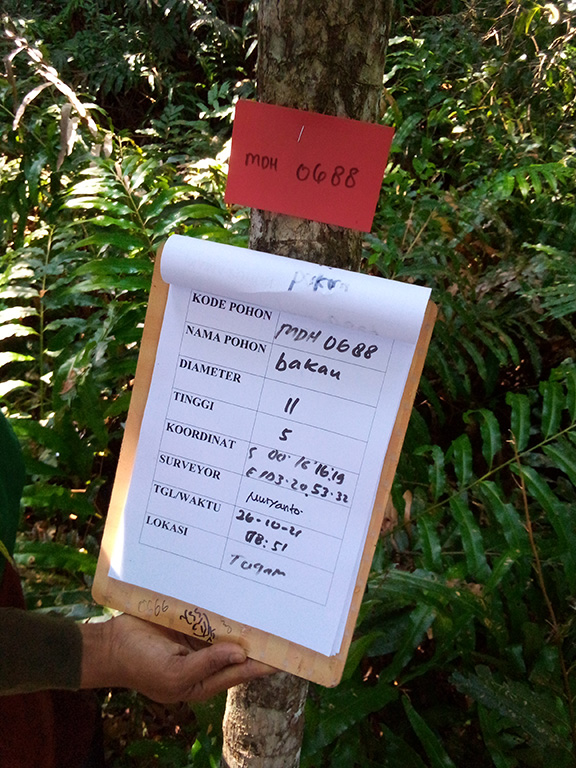 MDH 0688
KODE POHON MDH 0688
NAMA POHON bakau
DIAMETER 11
TINGGI 5
KOORDINAT S 00. 16 16.19
E 103.20.53.32
SURVEYOR Muryanto.
TGL/WAKTU 26-10-21
08:51
LOKASI Tugam